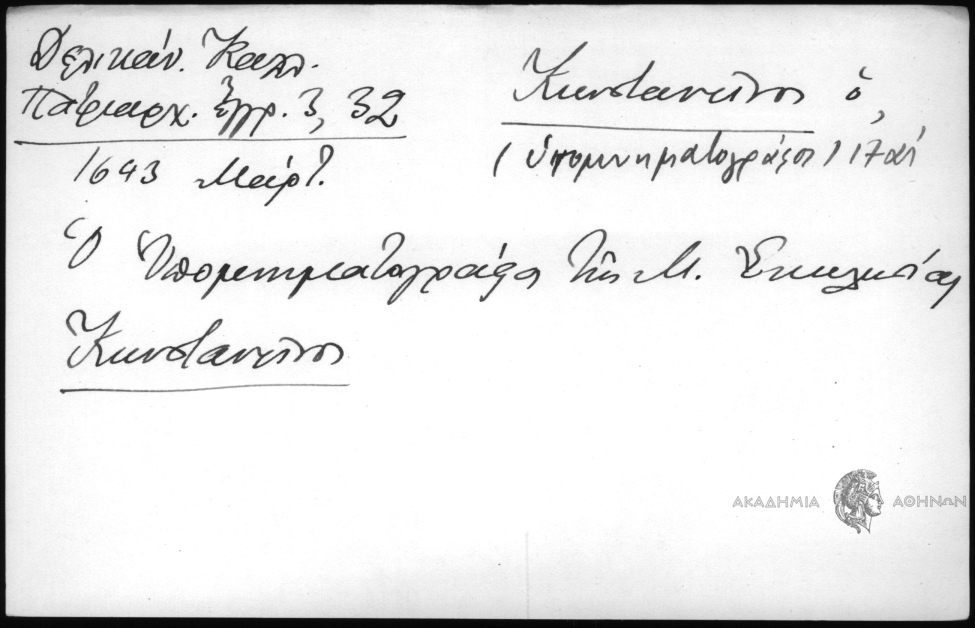 Δελικάν. Καλλ.
Πατριαρχ. Ἔγγρ. 3, 32
1643 Μάρτ.
Κωνσταντῖνος ὁ,
(ὑπομνηματογράφος) 17 αἰ
Ὁ Ὑπομνηματογράφος τῆς Μ. Ἐκκλησίας
Κωνσταντῖνος
ΑΚΑΔΗΜΙΑ ΑΘΗΝΩΝ